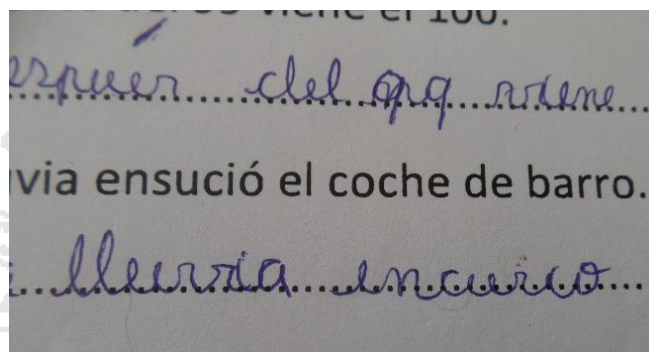 viene el 100.
espués del 99 viene
via ensució el coche de barro.
lluvia encucio